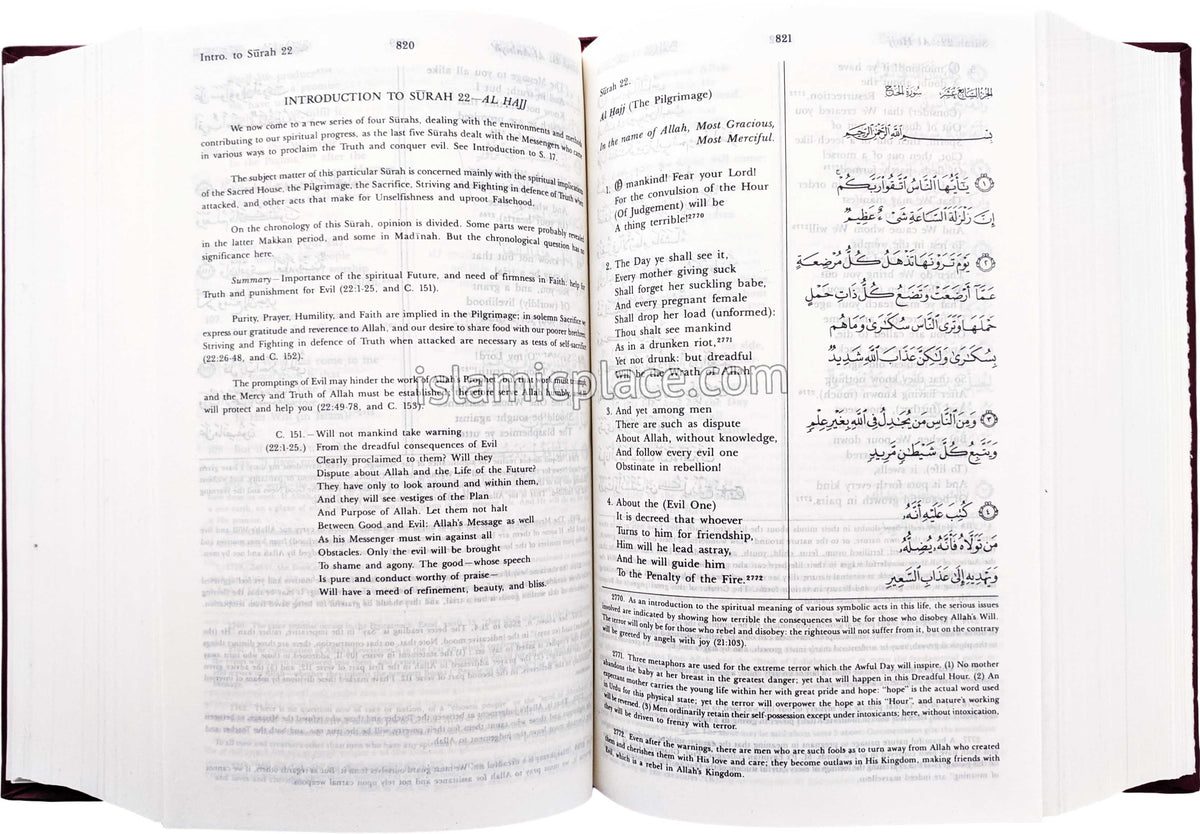 Intro. to Sūrah 22
820
INTRODUCTION TO SŪRAH 22—AL ḤAJJ
We now come to a new series of four Sūrahs, dealing with the environments and methods
contributing to our spiritual progress, as the last five Sūrahs dealt with the Messengers who came
in various ways to proclaim the Truth and conquer evil. See Introduction to S. 17.
The subject matter of this particular Sūrah is concerned mainly with the spiritual implications
of the Sacred House, the Pilgrimage, the Sacrifice, Striving and Fighting in defence of Truth when
attacked, and other acts that make for Unselfishness and uproot Falsehood.
On the chronology of this Sūrah, opinion is divided. Some parts were probably revealed
in the latter Makkan period, and some in Madīnah. But the chronological question has no
significance here.
Summary—Importance of the spiritual Future, and need of firmness in Faith: help for
Truth and punishment for Evil (22:1-25, and C. 151).
Purity, Prayer, Humility, and Faith are implied in the Pilgrimage; in solemn Sacrifice we
express our gratitude and reverence to Allah, and our desire to share food with our poorer brethren;
Striving and Fighting in defence of Truth when attacked are necessary as tests of self-sacrifice
(22:26-48, and C. 152).
The promptings of Evil may hinder the work of Allah's Prophet, but that work must triumph,
and the Mercy and Truth of Allah must be established; therefore serve Allah humbly, and He
will protect and help you (22:49-78, and C. 153).
C. 151.—Will not mankind take warning
(22:1-25.) From the dreadful consequences of Evil
Clearly proclaimed to them? Will they
Dispute about Allah and the Life of the Future?
They have only to look around and within them,
And they will see vestiges of the Plan
And Purpose of Allah. Let them not halt
Between Good and Evil: Allah's Message as well
As his Messenger must win against all
Obstacles. Only the evil will be brought
To shame and agony. The good—whose speech
Is pure and conduct worthy of praise—
Will have a meed of refinement, beauty, and bliss.
821
Sūrah 22.
Al Ḥajj (The Pilgrimage)
In the name of Allah, Most Gracious,
Most Merciful.
1. O mankind! Fear your Lord!
For the convulsion of the Hour
(Of Judgement) will be
A thing terrible!2770
2. The Day ye shall see it,
Every mother giving suck
Shall forget her suckling babe,
And every pregnant female
Shall drop her load (unformed):
Thou shalt see mankind
As in a drunken riot,2771
Yet not drunk: but dreadful
Will be the Wrath of Allah.
3. And yet among men
There are such as dispute
About Allah, without knowledge,
And follow every evil one
Obstinate in rebellion!
4. About the (Evil One)
It is decreed that whoever
Turns to him for friendship,
Him will he lead astray,
And he will guide him
To the Penalty of the Fire.2772
الجزء السابع عشر سورة الحج
بِسْمِ اللَّهِ الرَّحْمَٰنِ الرَّحِيمِ
١ يَٰٓأَيُّهَا النَّاسُ اتَّقُوا رَبَّكُمْ ۚ
إِنَّ زَلْزَلَةَ السَّاعَةِ شَىْءٌ عَظِيمٌ
٢ يَوْمَ تَرَوْنَهَا تَذْهَلُ كُلُّ مُرْضِعَةٍ
عَمَّآ أَرْضَعَتْ وَتَضَعُ كُلُّ ذَاتِ حَمْلٍ
حَمْلَهَا وَتَرَى النَّاسَ سُكَٰرَىٰ وَمَا هُم
بِسُكَٰرَىٰ وَلَٰكِنَّ عَذَابَ اللَّهِ شَدِيدٌ
٣ وَمِنَ النَّاسِ مَن يُجَٰدِلُ فِى اللَّهِ بِغَيْرِ عِلْمٍ
وَيَتَّبِعُ كُلَّ شَيْطَٰنٍ مَّرِيدٍ
٤ كُتِبَ عَلَيْهِ أَنَّهُۥ
مَن تَوَلَّاهُ فَأَنَّهُۥ يُضِلُّهُۥ
وَيَهْدِيهِ إِلَىٰ عَذَابِ السَّعِيرِ
2770. As an introduction to the spiritual meaning of various symbolic acts in this life, the serious issues
involved are indicated by showing how terrible the consequences will be for those who disobey Allah's Will.
The terror will only be for those who rebel and disobey: the righteous will not suffer from it, but on the contrary
will be greeted by angels with joy (21:103).
2771. Three metaphors are used for the extreme terror which the Awful Day will inspire. (1) No mother
abandons the baby at her breast in the greatest danger; yet that will happen in this Dreadful Hour. (2) An
expectant mother carries the young life within her with great pride and hope: "hope" is the actual word used
in Urdu for this physical state; yet the terror will overpower the hope at this "Hour", and nature's working
will be reversed. (3) Men ordinarily retain their self-possession except under intoxicants; here, without intoxication,
they will be driven to frenzy with terror.
2772. Even after the warnings, there are men who are such fools as to turn away from Allah who created
them and cherishes them with His love and care; they become outlaws in His Kingdom, making friends with
Evil, which is a rebel in Allah's Kingdom.
islamicplace.com